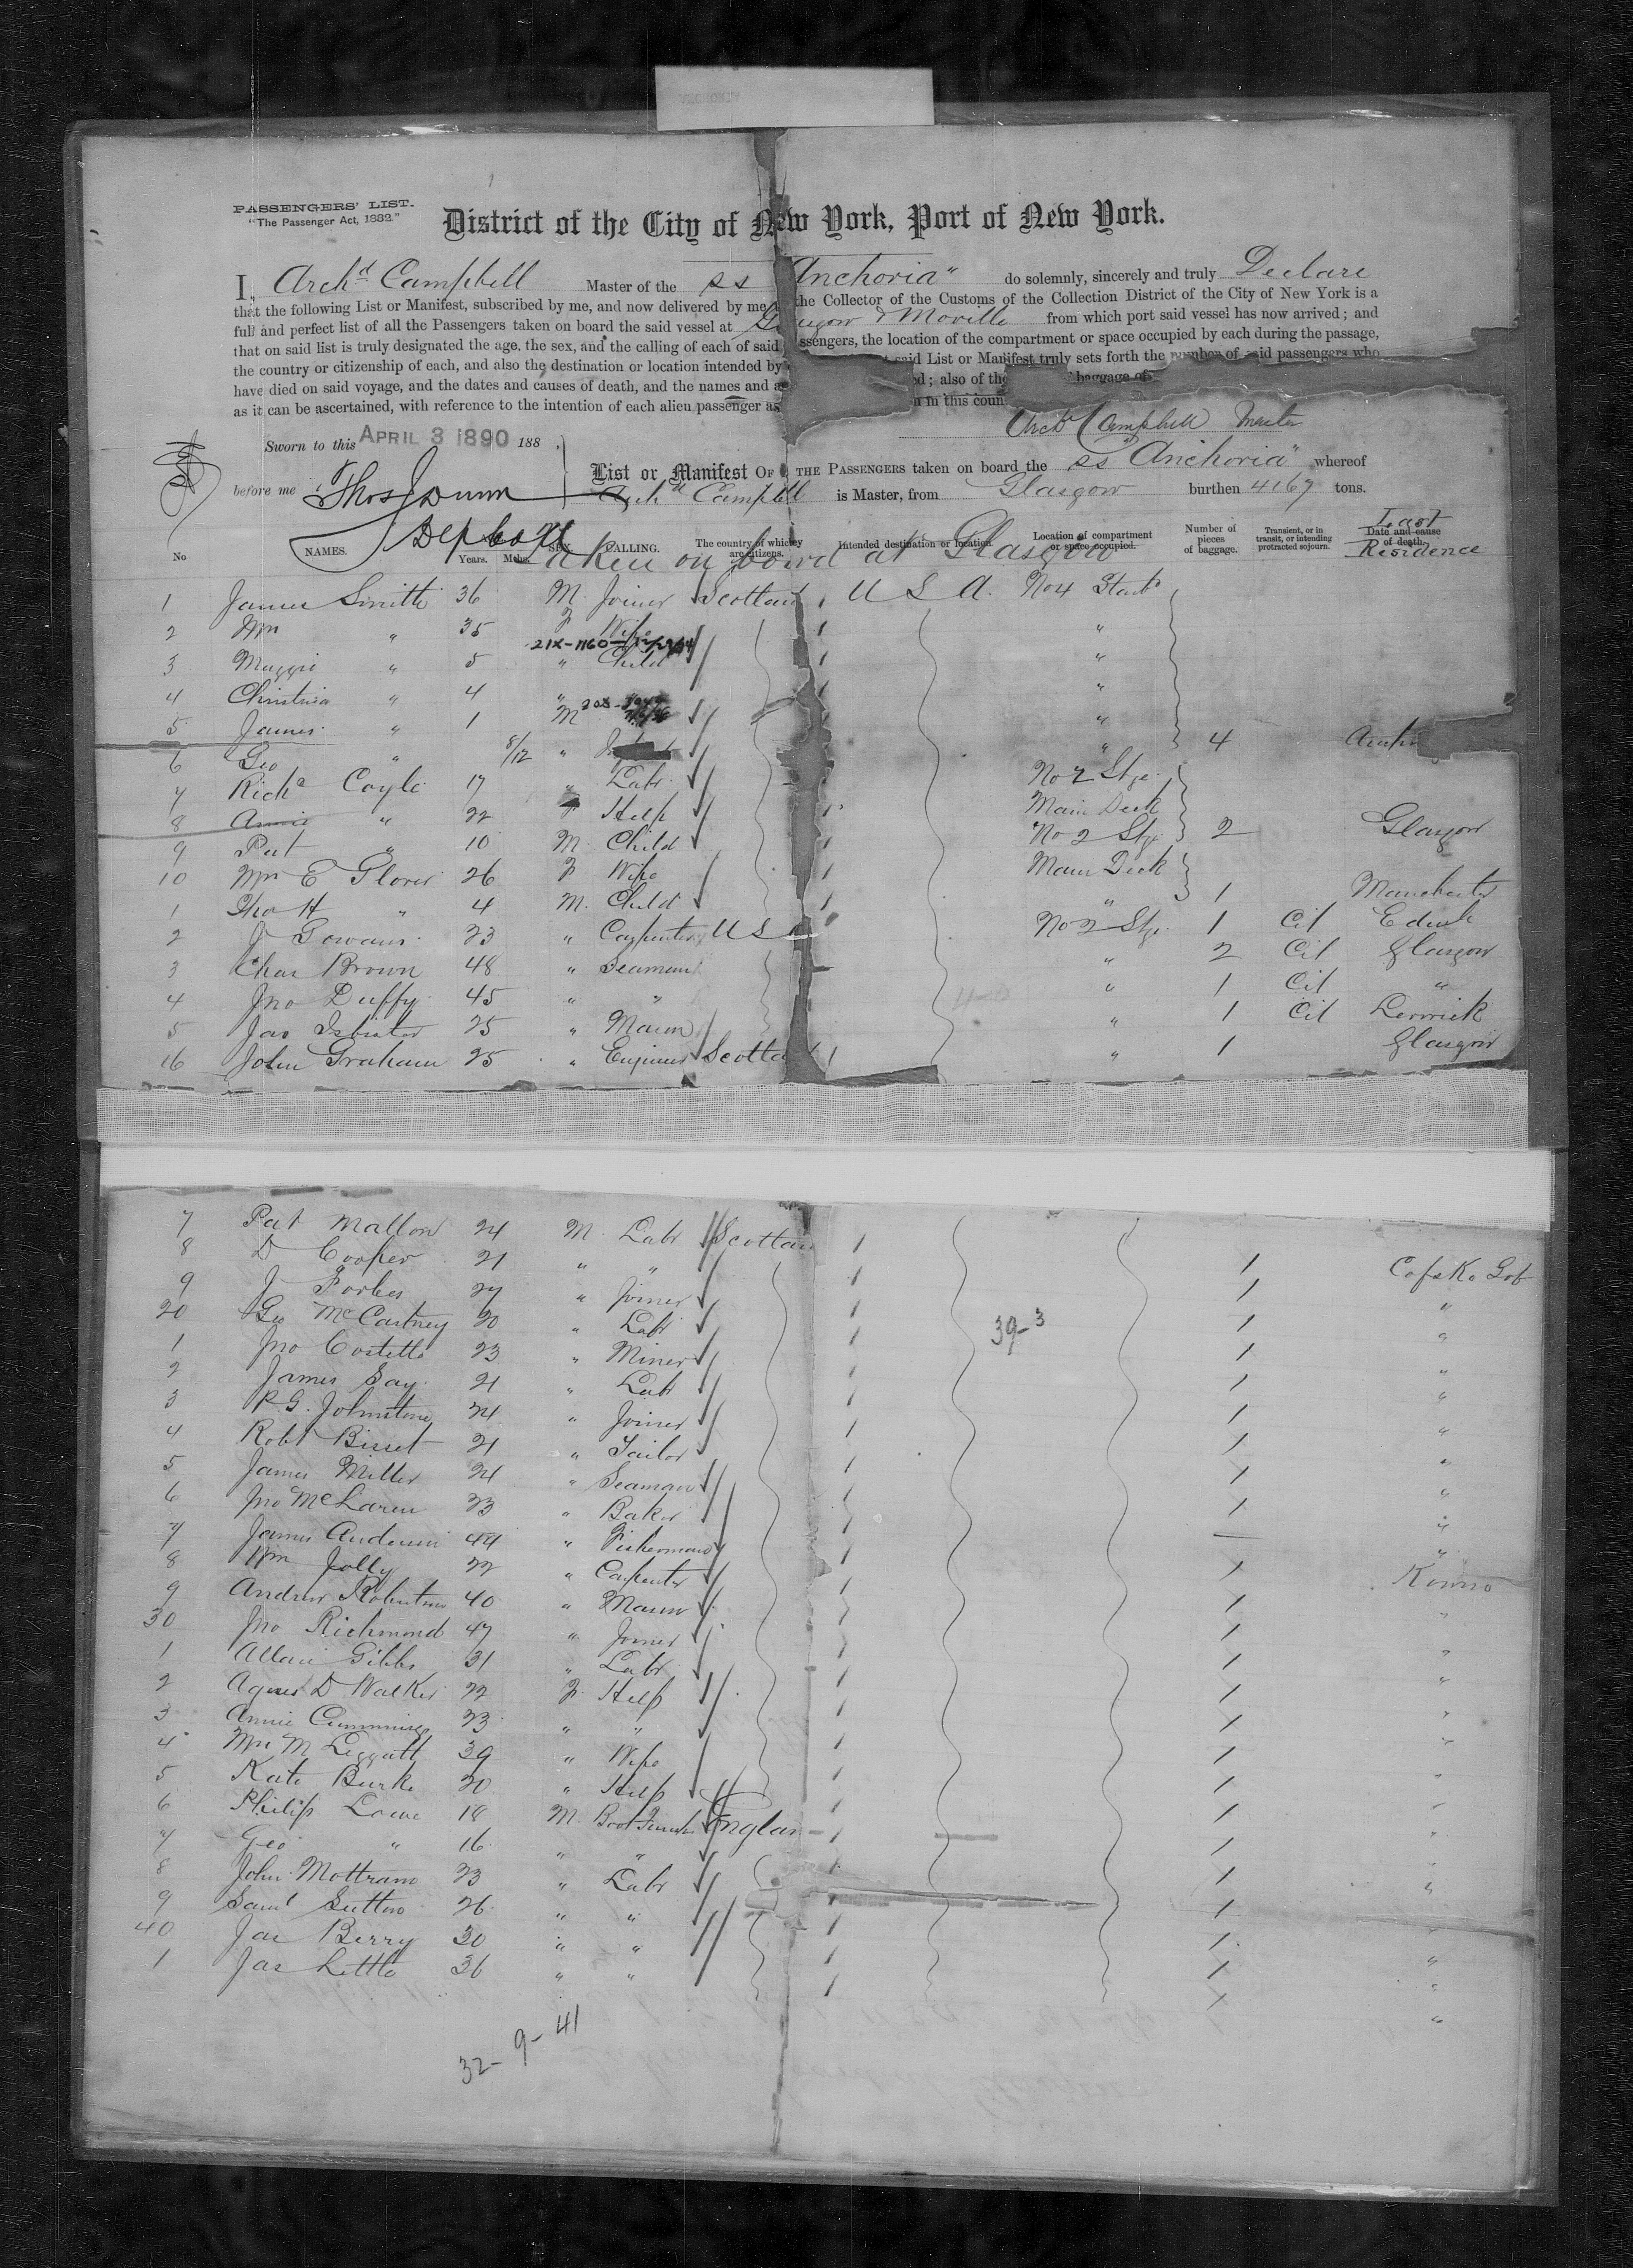 PASSENGERS' LIST.
"The Passenger Act, 1882."
District of the City of New York, Port of New York.
I, Archd Campbell Master of the SS "Anchoria" do solemnly, sincerely and truly Declare
that the following List or Manifest, subscribed by me, and now delivered by me the Collector of the Customs of the Collection District of the City of New York is a
full and perfect list of all the Passengers taken on board the said vessel at Glasgow & Moville from which port said vessel has now arrived; and
that on said list is truly designated the age, the sex, and the calling of each of said passengers, the location of the compartment or space occupied by each during the passage,
the country or citizenship of each, and also the destination or location intended by said List or Manifest truly sets forth the number of said passengers who
have died on said voyage, and the dates and causes of death, and the names and also of the baggage of
as it can be ascertained, with reference to the intention of each alien passenger as in this coun
Archd Campbell Master
Sworn to this APRIL 3 1890 188
List or Manifest OF THE PASSENGERS taken on board the SS "Anchoria" whereof
before me Thos J Dunn Archd Campbell is Master, from Glasgow burthen 4167 tons.
Dep Coll
No NAMES. Years. Mths. SEX. CALLING. The country of which they are citizens. Intended destination or location. Location of compartment or space occupied. Number of pieces of baggage. Transient, or in transit, or intending protracted sojourn. Date and cause of death. Last Residence
Taken on board at Glasgow
1 James Smith 36 M. Joiner Scotland 1 U S A. No 4 Starbd
2 Mrs " 35 F Wife 1 "
21X-1160
3 Maggie " 5 " Child 1 "
4 Christina " 4 " "
5 James " 1 M 1 "
6 Geo " 8/12 " " 4
7 Richd Coyle 17 " Labr 1 No 2 Stge
8 Annie " 22 F Help 1 Main Deck
9 Pat " 10 M. Child 1 No 2 Stge 2 Glasgow
10 Mrs E Glover 26 F Wife 1 Main Deck
1 Tho H " 4 M. Child 1 " 1 Manchester
2 J Gowans 23 " Carpenter U S No 2 Stge 1 Cit Edinb
3 Chas Brown 48 " Seaman " 2 Cit Glasgow
4 Jno Duffy 45 " " " 1 Cit "
5 Jas Isbister 25 " Mason " 1 Cit Lerwick
16 John Graham 25 " Engineer Scotland 1 " 1 Glasgow
7 Pat Mallon 24 M. Labr Scotland 1
8 D Cooper 21 " " 1 1
9 J Forbes 27 " Joiner 1 1 "
20 Geo McCartney 20 " Labr 1 39-3 1 "
1 Jno Costello 23 " Miner 1 1 "
2 James Say 21 " Labr 1 1 "
3 R G. Johnstone 24 " Joiner 1 1 "
4 Robt Bisset 21 " Tailor 1 1 "
5 James Miller 24 " Seaman 1 1 "
6 Jno McLaren 23 " Baker 1 1 "
7 James Anderson 44 " Fisherman 1 — "
8 Wm Jolly 22 " Carpenter 1 1
9 Andrew Robertson 40 " Mason 1 1 "
30 Jno Richmond 47 " Joiner 1 1 "
1 Allan Gibbs 31 " Labr 1 1 "
2 Agnes D Walker 22 F. Help 1 1 "
3 Annie Cummings 23 " " 1 1 "
4 Mrs M Leggatt 39 " Wife 1 1 "
5 Kate Burke 20 " Help 1 1 "
6 Philip Lowe 18 M. Boot Finisher England 1 1 "
7 Geo " 16 " " 1 1 "
8 John Mottram 23 " Labr 1 1 "
9 Saml Sutton 26 " " 1 1 "
40 Jas Berry 30 " " 1 1 "
1 Jas Little 36 " " 1 1 "
32-9-41